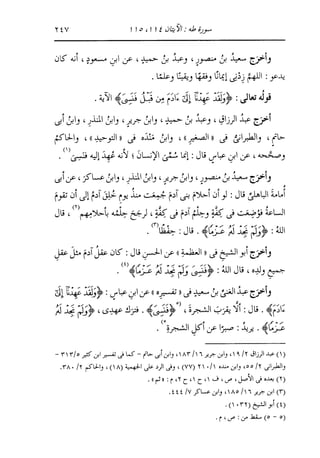 سورة طه : الآيتان ١١٤، ١١٥
٢٤٧
وأخرج سعيدُ بنُ منصورٍ، وعبدُ بنُ حميدٍ، عن ابنِ مسعودٍ، أنه كان
يدعو : اللهمَّ زِدْنى إيمانًا وفقهًا ويقينًا وعلمًا .
قولُه تعالى : ﴿وَلَقَدْ عَهِدْنَآ إِلَىٰٓ ءَادَمَ مِن قَبْلُ فَنَسِىَ﴾ الآية .
أخرج عبدُ الرزاقِ، وعبدُ بنُ حميدٍ، وابنُ جريرٍ، وابنُ المنذرِ، وابنُ أبى
حاتمٍ، والطبرانىُّ فى «الصغيرِ»، وابنُ منْدَه فى «التوحيدِ»، والحاكمُ
وصحَّحه، عن ابنِ عباسٍ قال : إنما سُمِّى الإنسانُ ؛ لأنه عُهِد إليه فنَسِى(١) .
وأخرج سعيدُ بنُ منصورٍ، وابنُ جريرٍ، وابنُ المنذرِ، وابنُ عساكرَ، عن أبى
أُمامةَ الباهلىِّ قال : لو أن أحلامَ بنى آدمَ جُمِعت منذُ يومِ خُلِق آدمُ إلى أن تقومَ
الساعةُ فوُضِعت فى كِفَّةٍ وحِلْمُ آدمَ فى كِفَّةٍ، لرجَح حِلْمُه بأحلامِهم(٢)، قال
اللهُ : ﴿وَلَمْ نَجِدْ لَهُۥ عَزْمًا﴾ . قال : حِفْظًا(٣) .
وأخرج أبو الشيخِ فى «العظمةِ» عن الحسنِ قال : كان عقلُ آدمَ مثلَ عقلِ
جميعِ ولدِه، قال اللهُ : ﴿فَنَسِىَ وَلَمْ نَجِدْ لَهُۥ عَزْمًا﴾(٤) .
وأخرج عبدُ الغنىِّ بنُ سعيدٍ فى «تفسيرِه» عن ابنِ عباسٍ : ﴿وَلَقَدْ عَهِدْنَآ إِلَىٰٓ
ءَادَمَ﴾ . قال : ألَّا يقرَبَ الشجرةَ، (٥﴿فَنَسِىَ﴾ . فترَك عهدى، ﴿وَلَمْ نَجِدْ لَهُۥ
عَزْمًا﴾ . يريدُ : صبرًا عن أكلِ الشجرةِ٥) .
(١) عبد الرزاق ١٩/٢، وابن جرير ١٨٣/١٦، وابن أبى حاتم - كما فى تفسير ابن كثير ٣١٣/٥ -
والطبرانى ٥٥/٢، وابن منده ٢١٠/١ (٧٧)، وفى الرد على الجهمية (١٨)، والحاكم ٣٨٠/٢.
(٢) بعده فى الأصل، ص، ف ١، ح ١، ح ٢، م : «ثم» .
(٣) ابن جرير ١٨٥/١٦، وابن عساكر ٤٤٤/٧.
(٤) أبو الشيخ (١٠٣٢) .
(٥ - ٥) سقط من : ص، م .